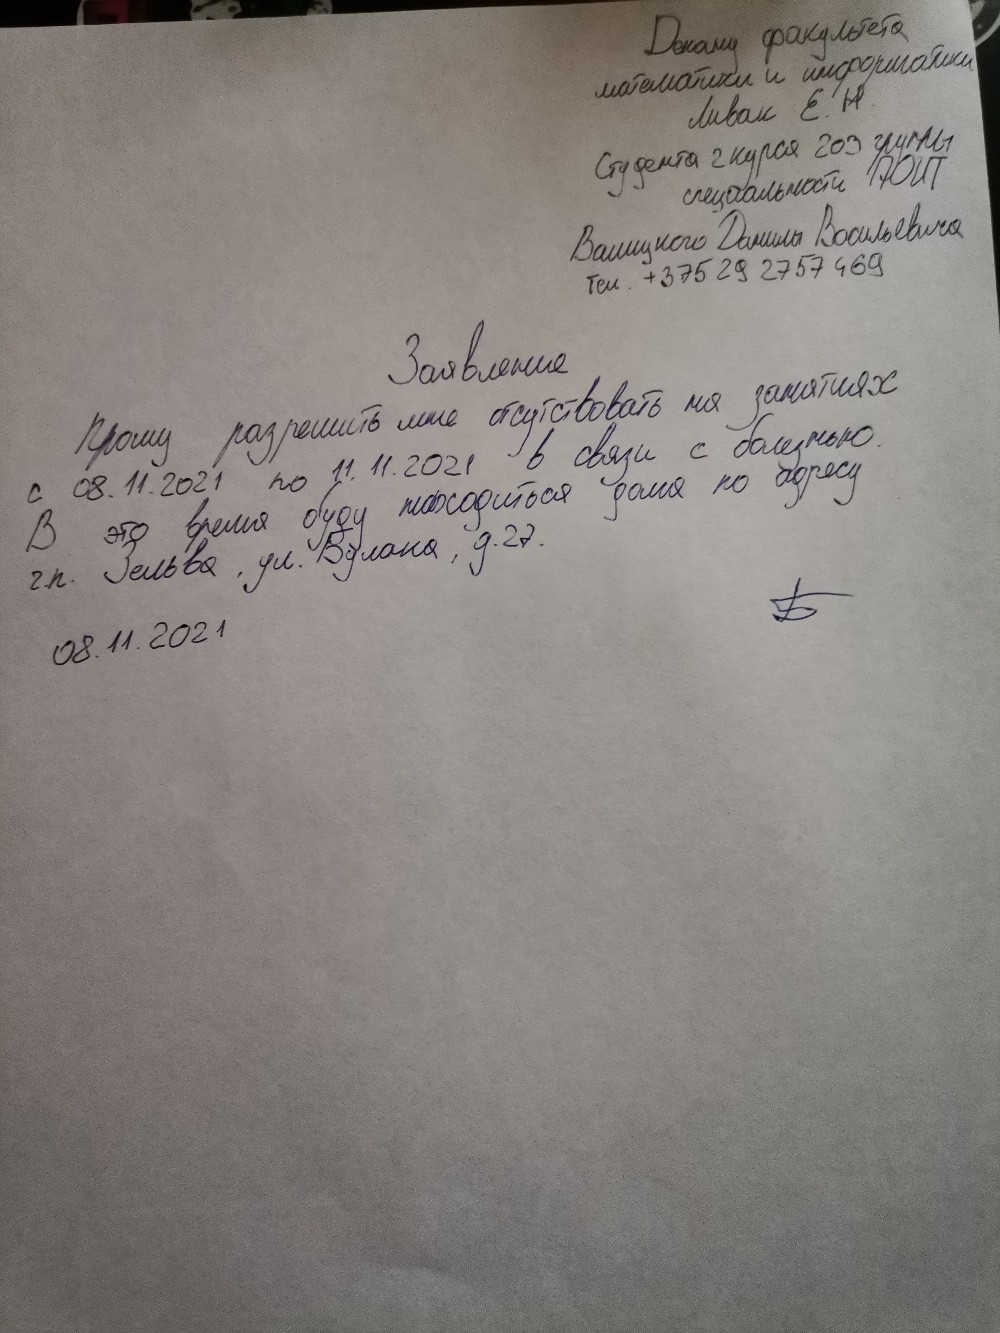 Декану факультета
математики и информатики
Ливак Е. Н.
Студента 2 курса 203 группы
специальности ПОИТ
Данилы Васильевича
тел. +375 29 2757469
Заявление
Прошу разрешить мне отсутствовать на занятиях
с 08.11.2021 по 11.11.2021 в связи с болезнью.
В это время буду находиться дома по адресу
г.п. Зельва, ул. Булака, д.27.
08.11.2021